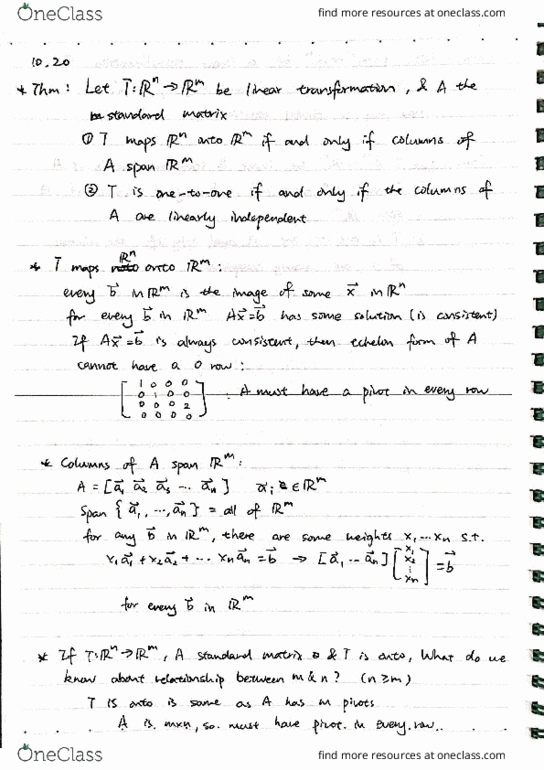 OneClass
find more resources at oneclass.com
10.20
* Thm : Let T:ℝⁿ→ℝᵐ be linear transformation, & A the
be standard matrix
① T maps ℝⁿ onto ℝᵐ if and only if columns of
A span ℝᵐ
② T is one-to-one if and only if the columns of
A are linearly independent
* T maps ℝⁿ onto ℝᵐ :
every b⃗ in ℝᵐ is the image of some x⃗ in ℝⁿ
for every b⃗ in ℝᵐ Ax⃗=b⃗ has some solution (is consistent)
If Ax⃗=b⃗ is always consistent, then echelon form of A
cannot have a 0 row :
[1 0 0 0
0 1 0 0
0 0 0 2
0 0 0 0] : A must have a pivot in every row
* Columns of A span ℝᵐ :
A = [a⃗₁ a⃗₂ a⃗₃ ... a⃗ₙ] a⃗ᵢ ∈ ℝᵐ
Span {a⃗₁, ..., a⃗ₙ} = all of ℝᵐ
for any b⃗ in ℝᵐ, there are some weights x₁...xₙ s.t.
x₁a⃗₁+x₂a⃗₂+... xₙa⃗ₙ=b⃗ → [a⃗₁...a⃗ₙ] [x₁ x₂ ⋮ xₙ] =b⃗
for every b⃗ in ℝᵐ
* If T:ℝⁿ→ℝᵐ, A standard matrix & T is onto, What do we
know about relationship between m & n ? (n≥m)
T is onto is same as A has m pivots
A is m×n, so must have pivot in every row.
OneClass
find more resources at oneclass.com